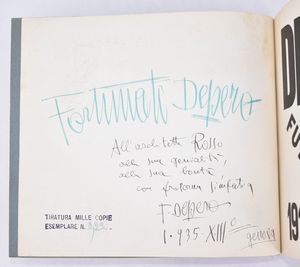 Fortunato Depero
All'architetto Rosso
alla sua genialità,
alla sua bontà,
con fraterna simpatia
F. Depero
1.935-XIII°
genova
TIRATURA MILLE COPIE
ESEMPLARE N.
D
FU
19